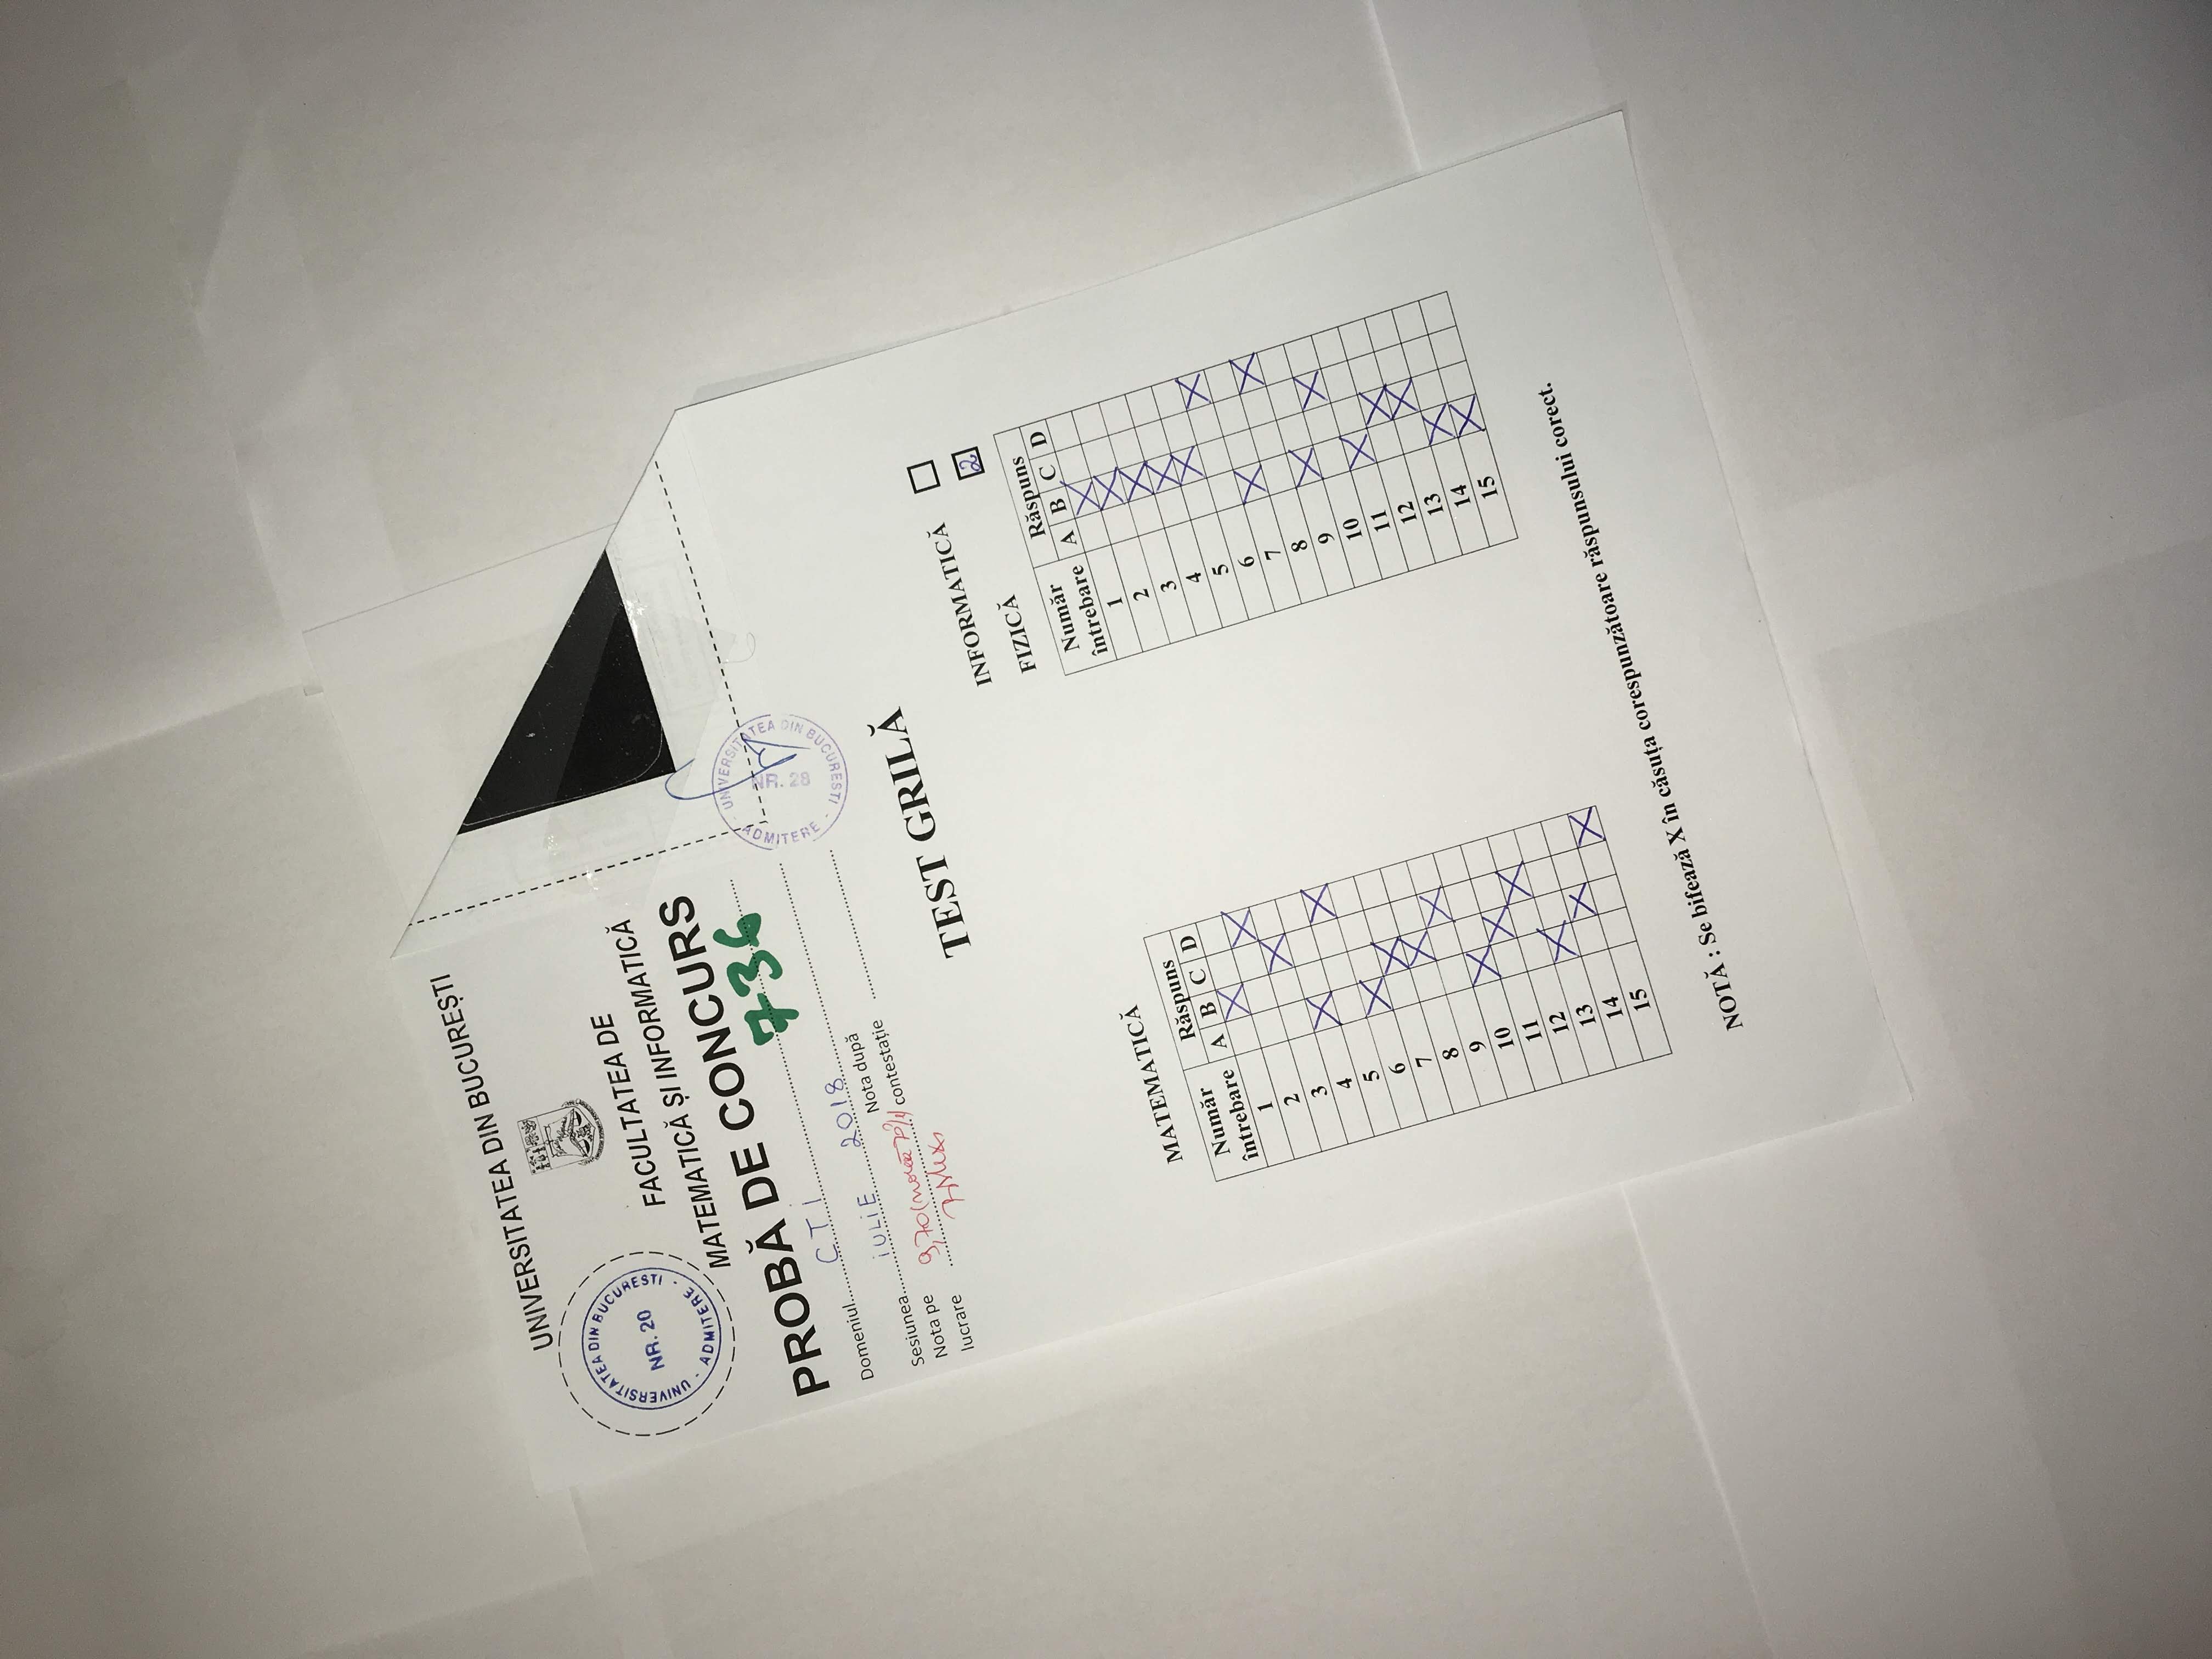 UNIVERSITATEA DIN BUCUREȘTI
UNIVERSITATEA DIN BUCURESTI - ADMITERE -
NR. 20
FACULTATEA DE
MATEMATICĂ ȘI INFORMATICĂ
PROBĂ DE CONCURS
736
Domeniul CTI
Sesiunea iULiE 2018
Nota pe lucrare 9,70 (nouă 70%)
Nota după contestație
UNIVERSITATEA DIN BUCURESTI - ADMITERE -
NR. 28
TEST GRILĂ
INFORMATICĂ
FIZICĂ 2
MATEMATICĂ
Număr întrebare Răspuns
A B C D
1 X
2 X
3 X
4 X
5 X
6 X
7 X
8 X
9 X
10 X
11 X
12 X
13 X
14 X
15 X
Număr întrebare Răspuns
A B C D
1 X
2 X
3 X
4 X
5 X
6 X
7 X
8 X
9 X
10 X
11 X
12 X
13 X
14 X
15 X
NOTĂ : Se bifează X în căsuța corespunzătoare răspunsului corect.